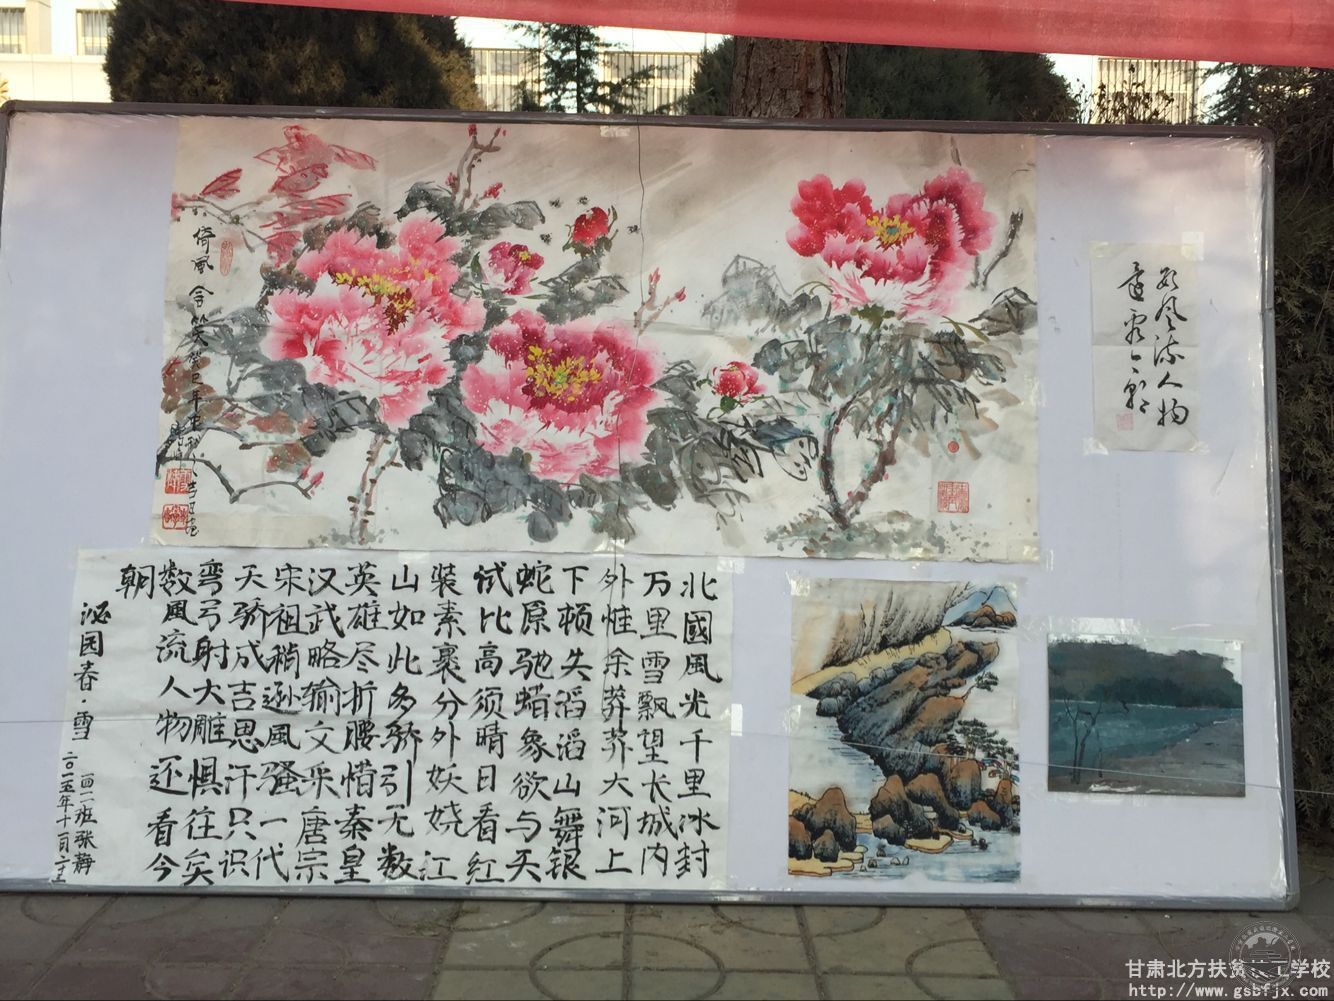 倚風含笑
癸巳年
数风流人物
北國風光千里冰封
万里雪飘望长城内
外惟余莽莽大河上
下顿失滔滔山舞银
蛇原驰蜡象欲与天
试比高须晴日看红
装素裹分外妖娆江
山如此多骄引无数
英雄尽折腰惜秦皇
汉武略输文采唐宗
宋祖稍逊風骚一代
天骄成吉思汗只识
弯弓射大雕惧往矣
数風流人物还看今
朝
泌园春·雪
画一二班张静
二〇一五年十一月二十三
甘肃北方扶贫技工学校
http://www.gsbfjx.com